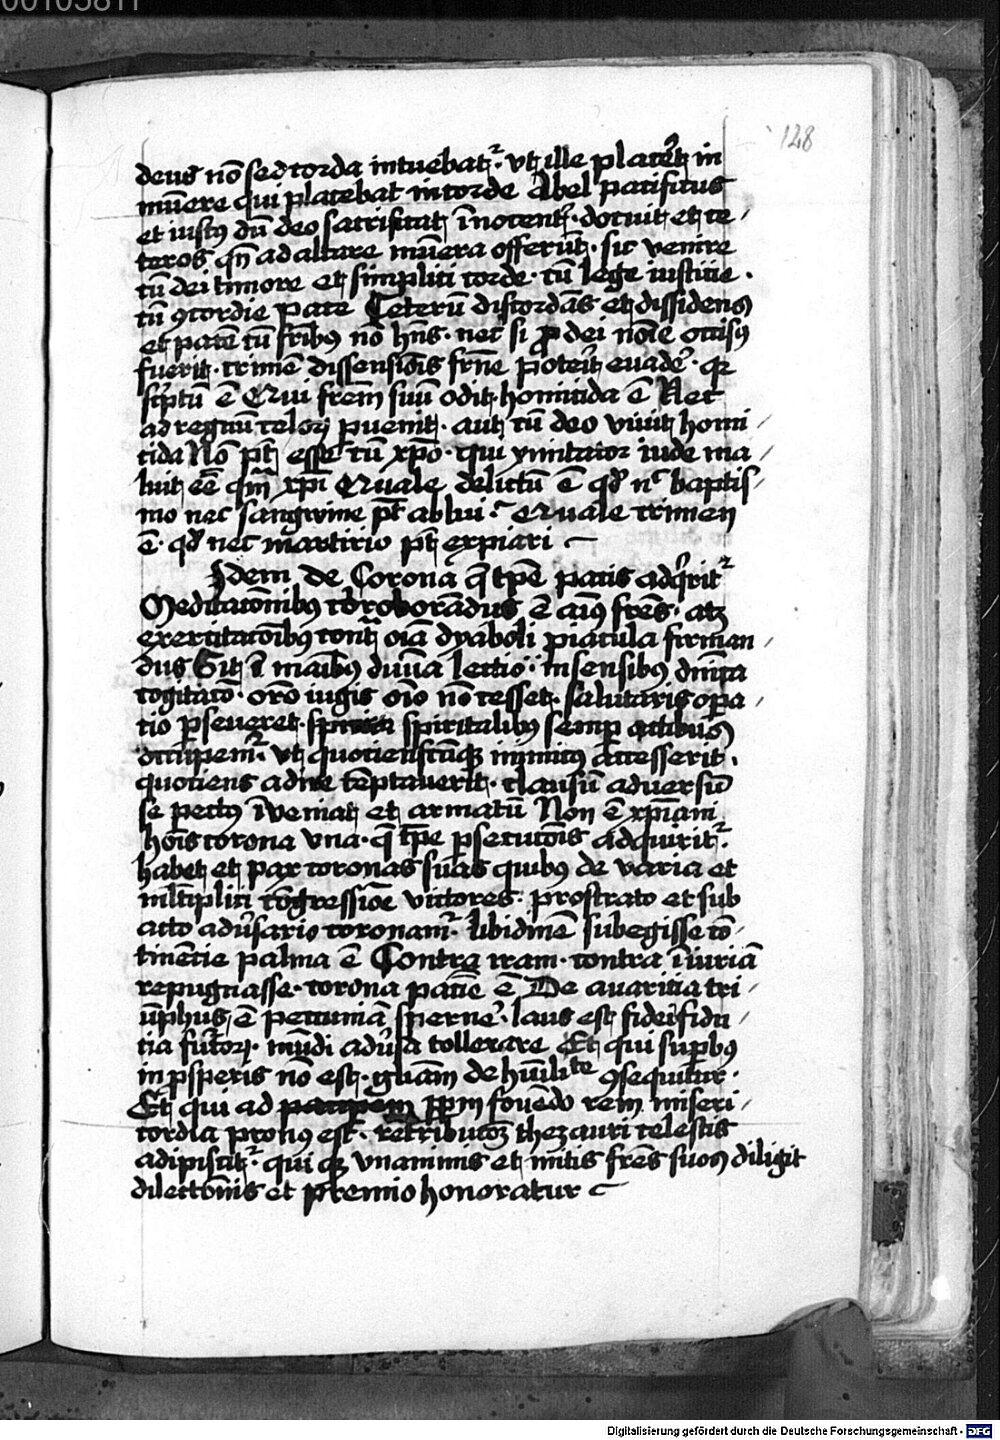 00105817
128
deus nō sed corda intuebat᷑. vt ille placēt in
mūere qui placebat in corde Abel pacificus
et iustꝰ dū deo sacrificat īnocent᷑. docuit et ce
teros qn̄ ad altare mūera offerūt. sic venire
cū dei timore et simplici corde. cū lege iusticie.
cū ꝯcordie pace Ceterū discordās et dissidens
et pacē cū fr̄ibꝰ nō hn̄s. nec si ꝓ dei noīe occisꝰ
fuerit. crimē dissensiōis fr̄ne poterit evadeͬ. qꝛ
scͥptū ē Qui frēm suū odit homicida ē Nec
ad regnū celoꝝ ꝑuenit. aut cū deo viuit homi
cida Nō pt̄ esse cū xp̄o. qui ymitator iude ma
luit eē qm̄ xp̄i Quale delictū ē qd̄ nͨ baptis
mo nec sangwine pt̄ ablui. Quale crimen
ē. qd̄ nec martirio pt̄ expiari
Idem de Corona q̄ tp̄e pacis adqͥrit᷑
Meditacōnibꝰ corroborādus ē aīꝰ frēs. atꝫ
exercitacōibꝰ contͣ oīa dyaboli piacula firman
dus Sit ī maībꝰ diuīa lectio. in sensibꝰ dn̄ica
cogitatō. orō iugis oīo nō cesset. salutaris opa
tio ꝑseueret. spiritalibꝰ semꝑ actibus
occupem᷑. vt quotienscūqꝫ inimicꝰ accesserit.
quotiens adire tēptauerit. clausū aduersū
se pectꝰ īveniat et armatū Non ē xp̄iani
hoīs corona vna. q̄ tp̄e ꝑsecucōis adquirit᷑.
habet et pax coronas suas quibꝰ de varia et
mltīplici cōgressiōe victores. prostrato et sub
acto adūsario coronam᷑. libidinē subegisse cō
tinēcie palma ē Contra iram. contra īiuriā
repugnasse. corona paciē ē De auaricia tri
ūphus ē pecuniā sperneͬ. laus est fidei fidu
cia futoꝝ. mūdi adūsa tollerare Et qui suꝑbꝰ
in ꝓsperis nō est. gliām de hūiliᵗᵉ ꝯsequitur.
Et qui ad pauꝑem fouēdo rem miseri
cordia pronꝰ est. retributōꝫ thezauri celestis
adipiscit᷑. qui qꝫ vnanimis et mitis fr̄es suos diligit
dilectōnis et premio honoratur
Digitalisierung gefördert durch die Deutsche Forschungsgemeinschaft - DFG